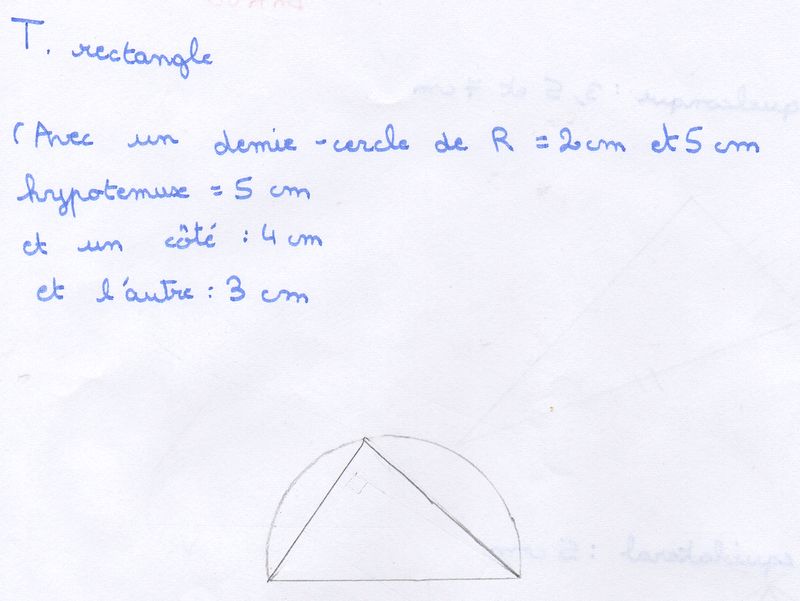 T. rectangle
(Avec un demie-cercle de R = 2cm et 5 cm
hypotemuse = 5 cm
et un côté : 4 cm
et l'autre : 3 cm